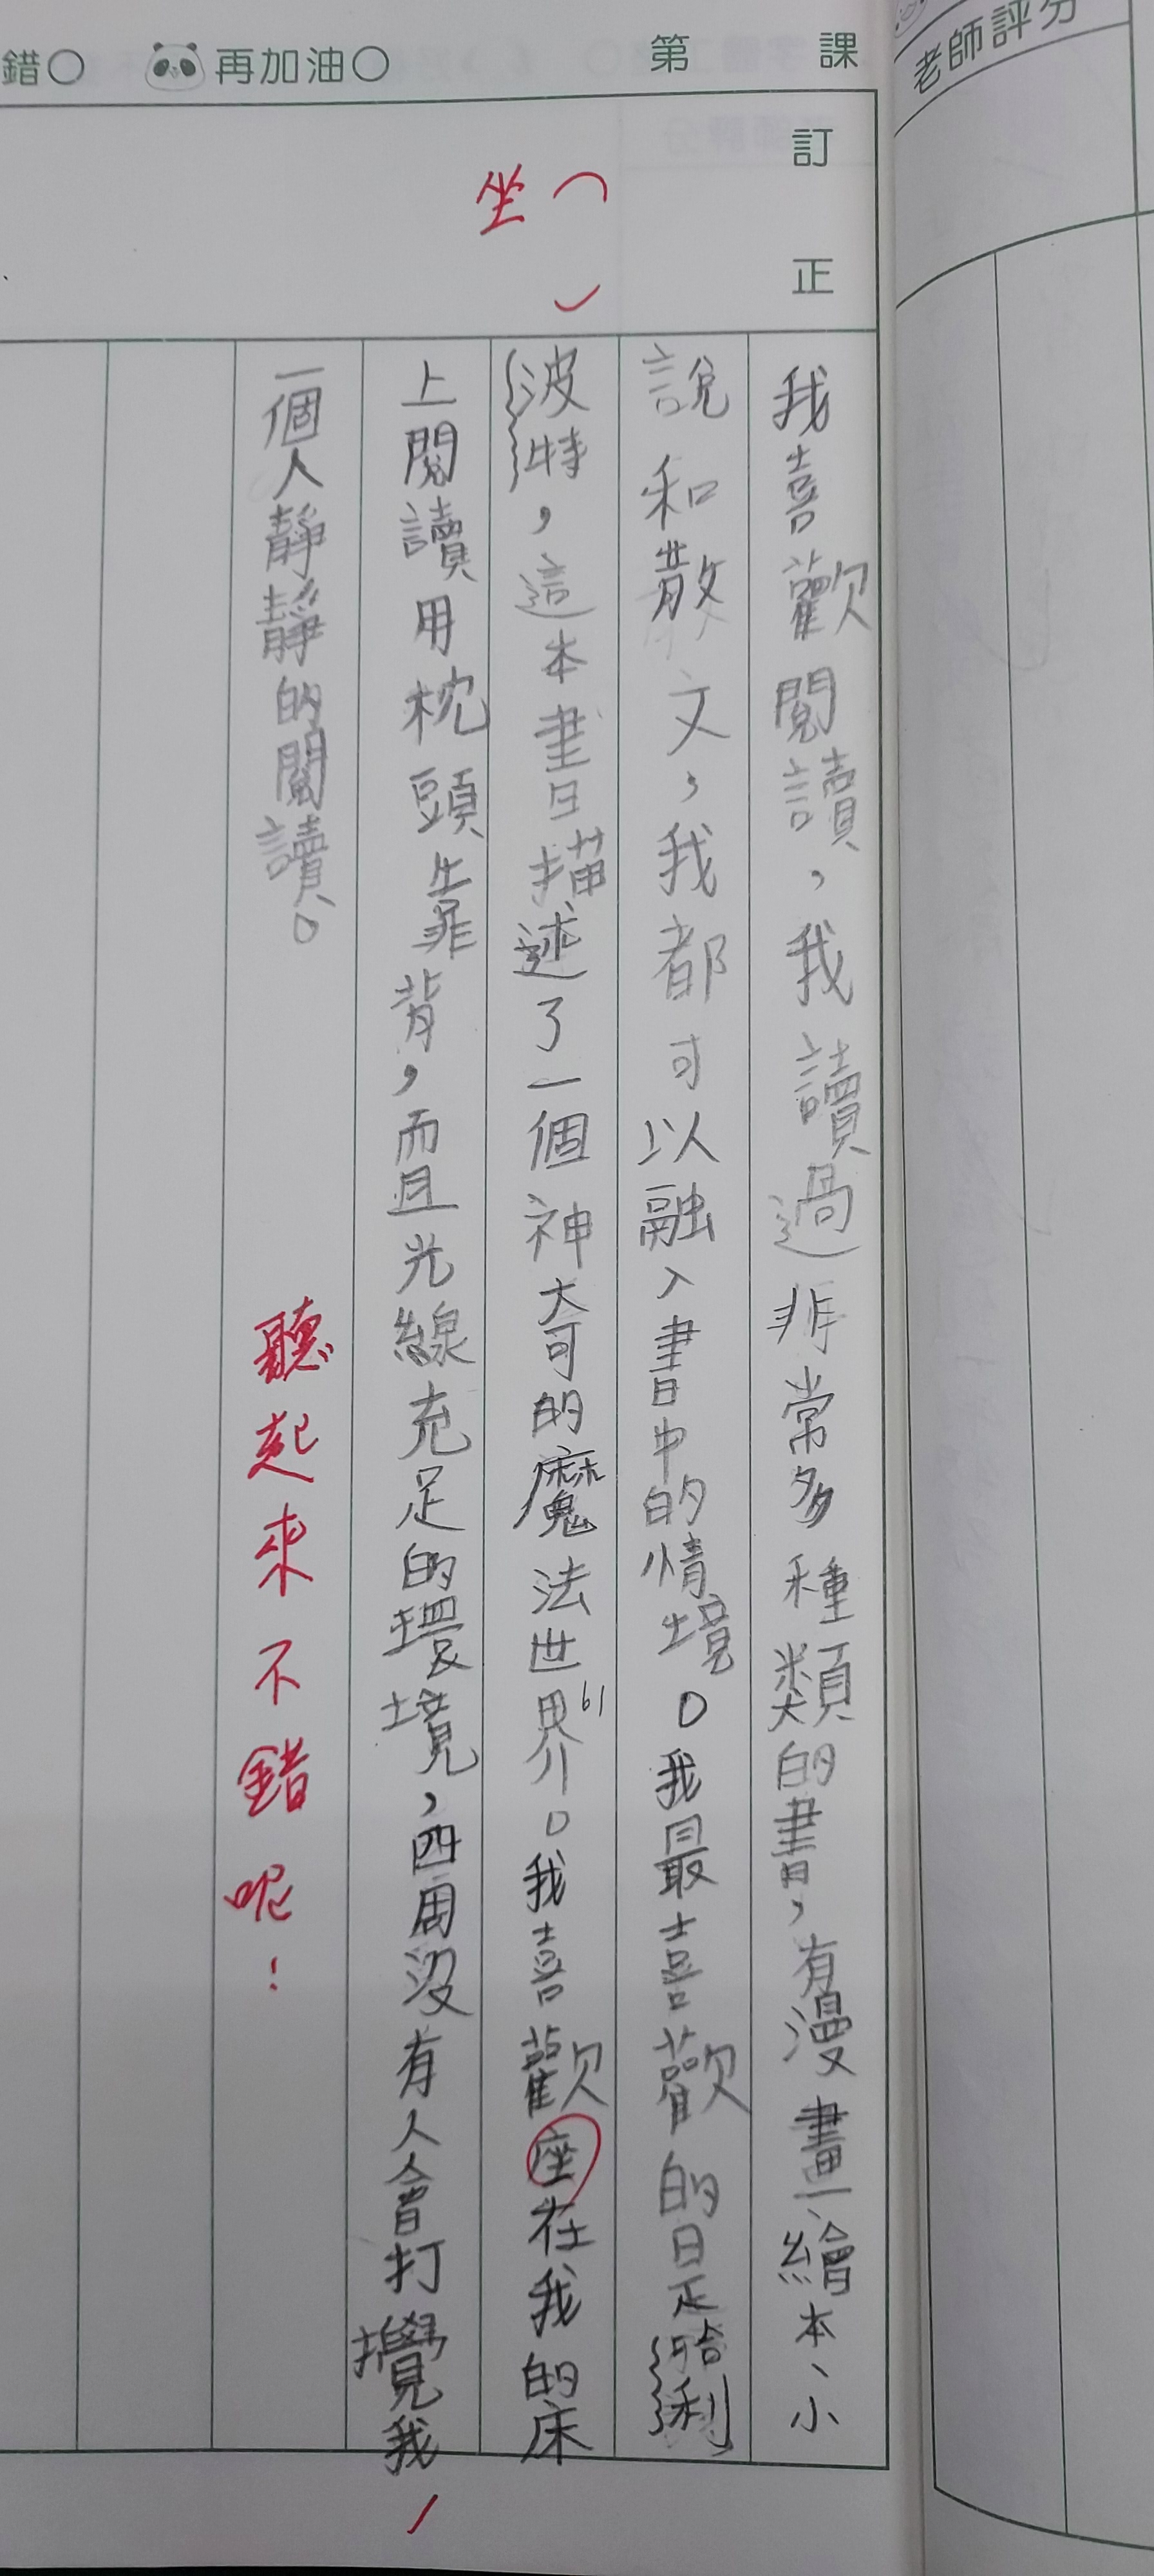 老師評分
錯○ 再加油○ 第 課
訂正
坐
我喜歡閱讀，我讀過非常多種類的書，有漫畫、繪本、小
說和散文，我都可以融入書中的情境。我最喜歡的是哈利
波特，這本書描述了一個神奇的魔法世界。我喜歡座在我的床
上閱讀用枕頭靠背，而且光線充足的環境，四周沒有人會打攪我
一個人靜靜的閱讀。
聽起來不錯呢！